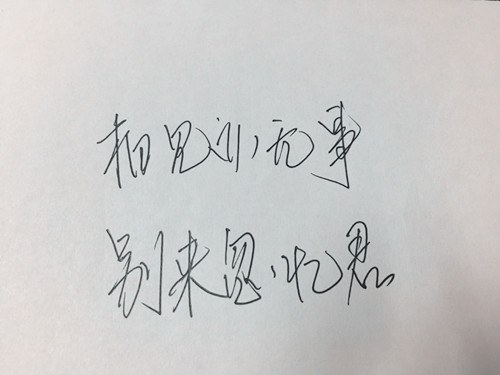 相见亦无事
别来思忆君